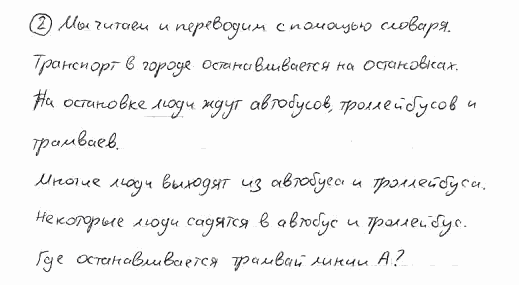 ② Мы читаем и переводим с помощью словаря.
Транспорт в городе останавливается на остановках.
На остановке люди ждут автобусов, троллейбусов и
трамваев.
Многие люди выходят из автобуса и троллейбуса.
Некоторые люди садятся в автобус и троллейбус.
Где останавливается трамвай линии А?